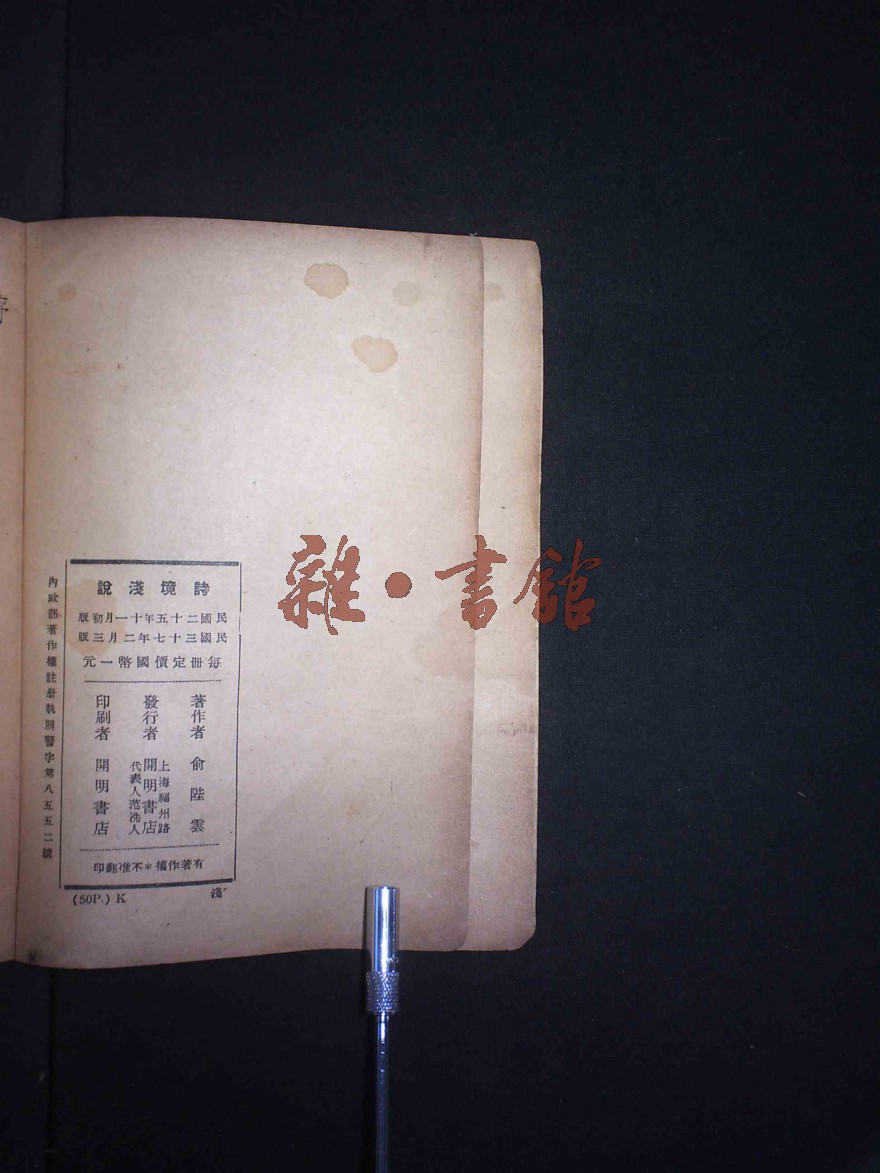 詩境淺說
民國二十五年十一月初版
民國三十七年二月三版
每冊定價國幣一元
著作者 俞陛雲
發行者 開明書店
上海福州路
代表人范洗人
印刷者 開明書店
有著作權＊不准翻印
內政部著作權註册執照警字第八五五二號
(50P.) K
淺
雜·書館